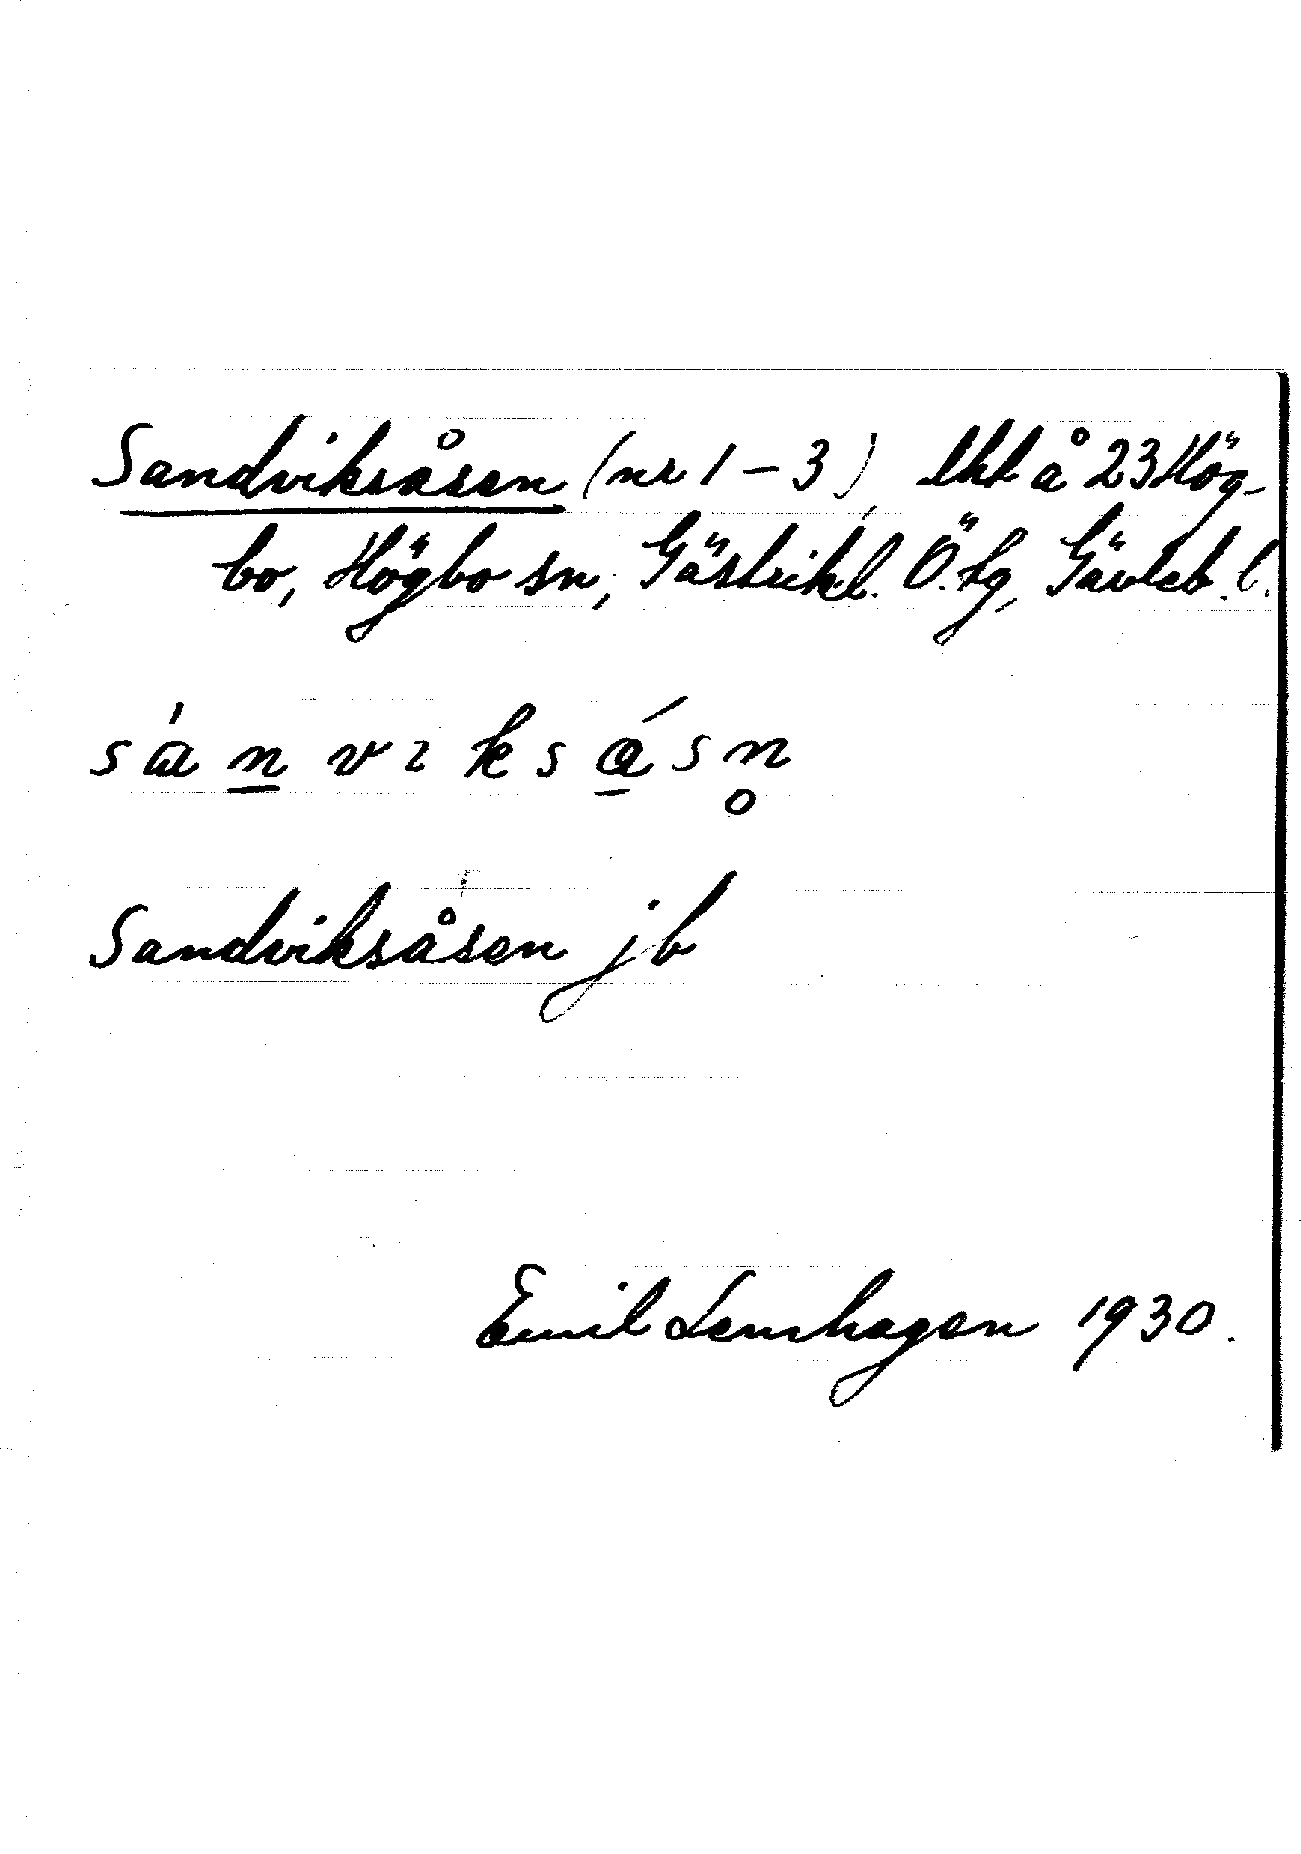 Sandviksåsen (nr 1-3), lht å 23 Hög-
bo, Högbo sn, Gästrikl. Ö. tg, Gävleb. l.
sánviksåsn
Sandviksåsen jb
Emil Lenhagen 1930.